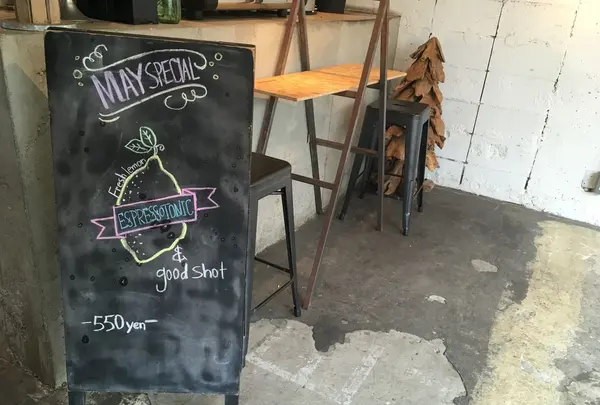 MAY SPECIAL
Fresh lemon
ESPRESSOTONIC
&
good shot
-550yen-